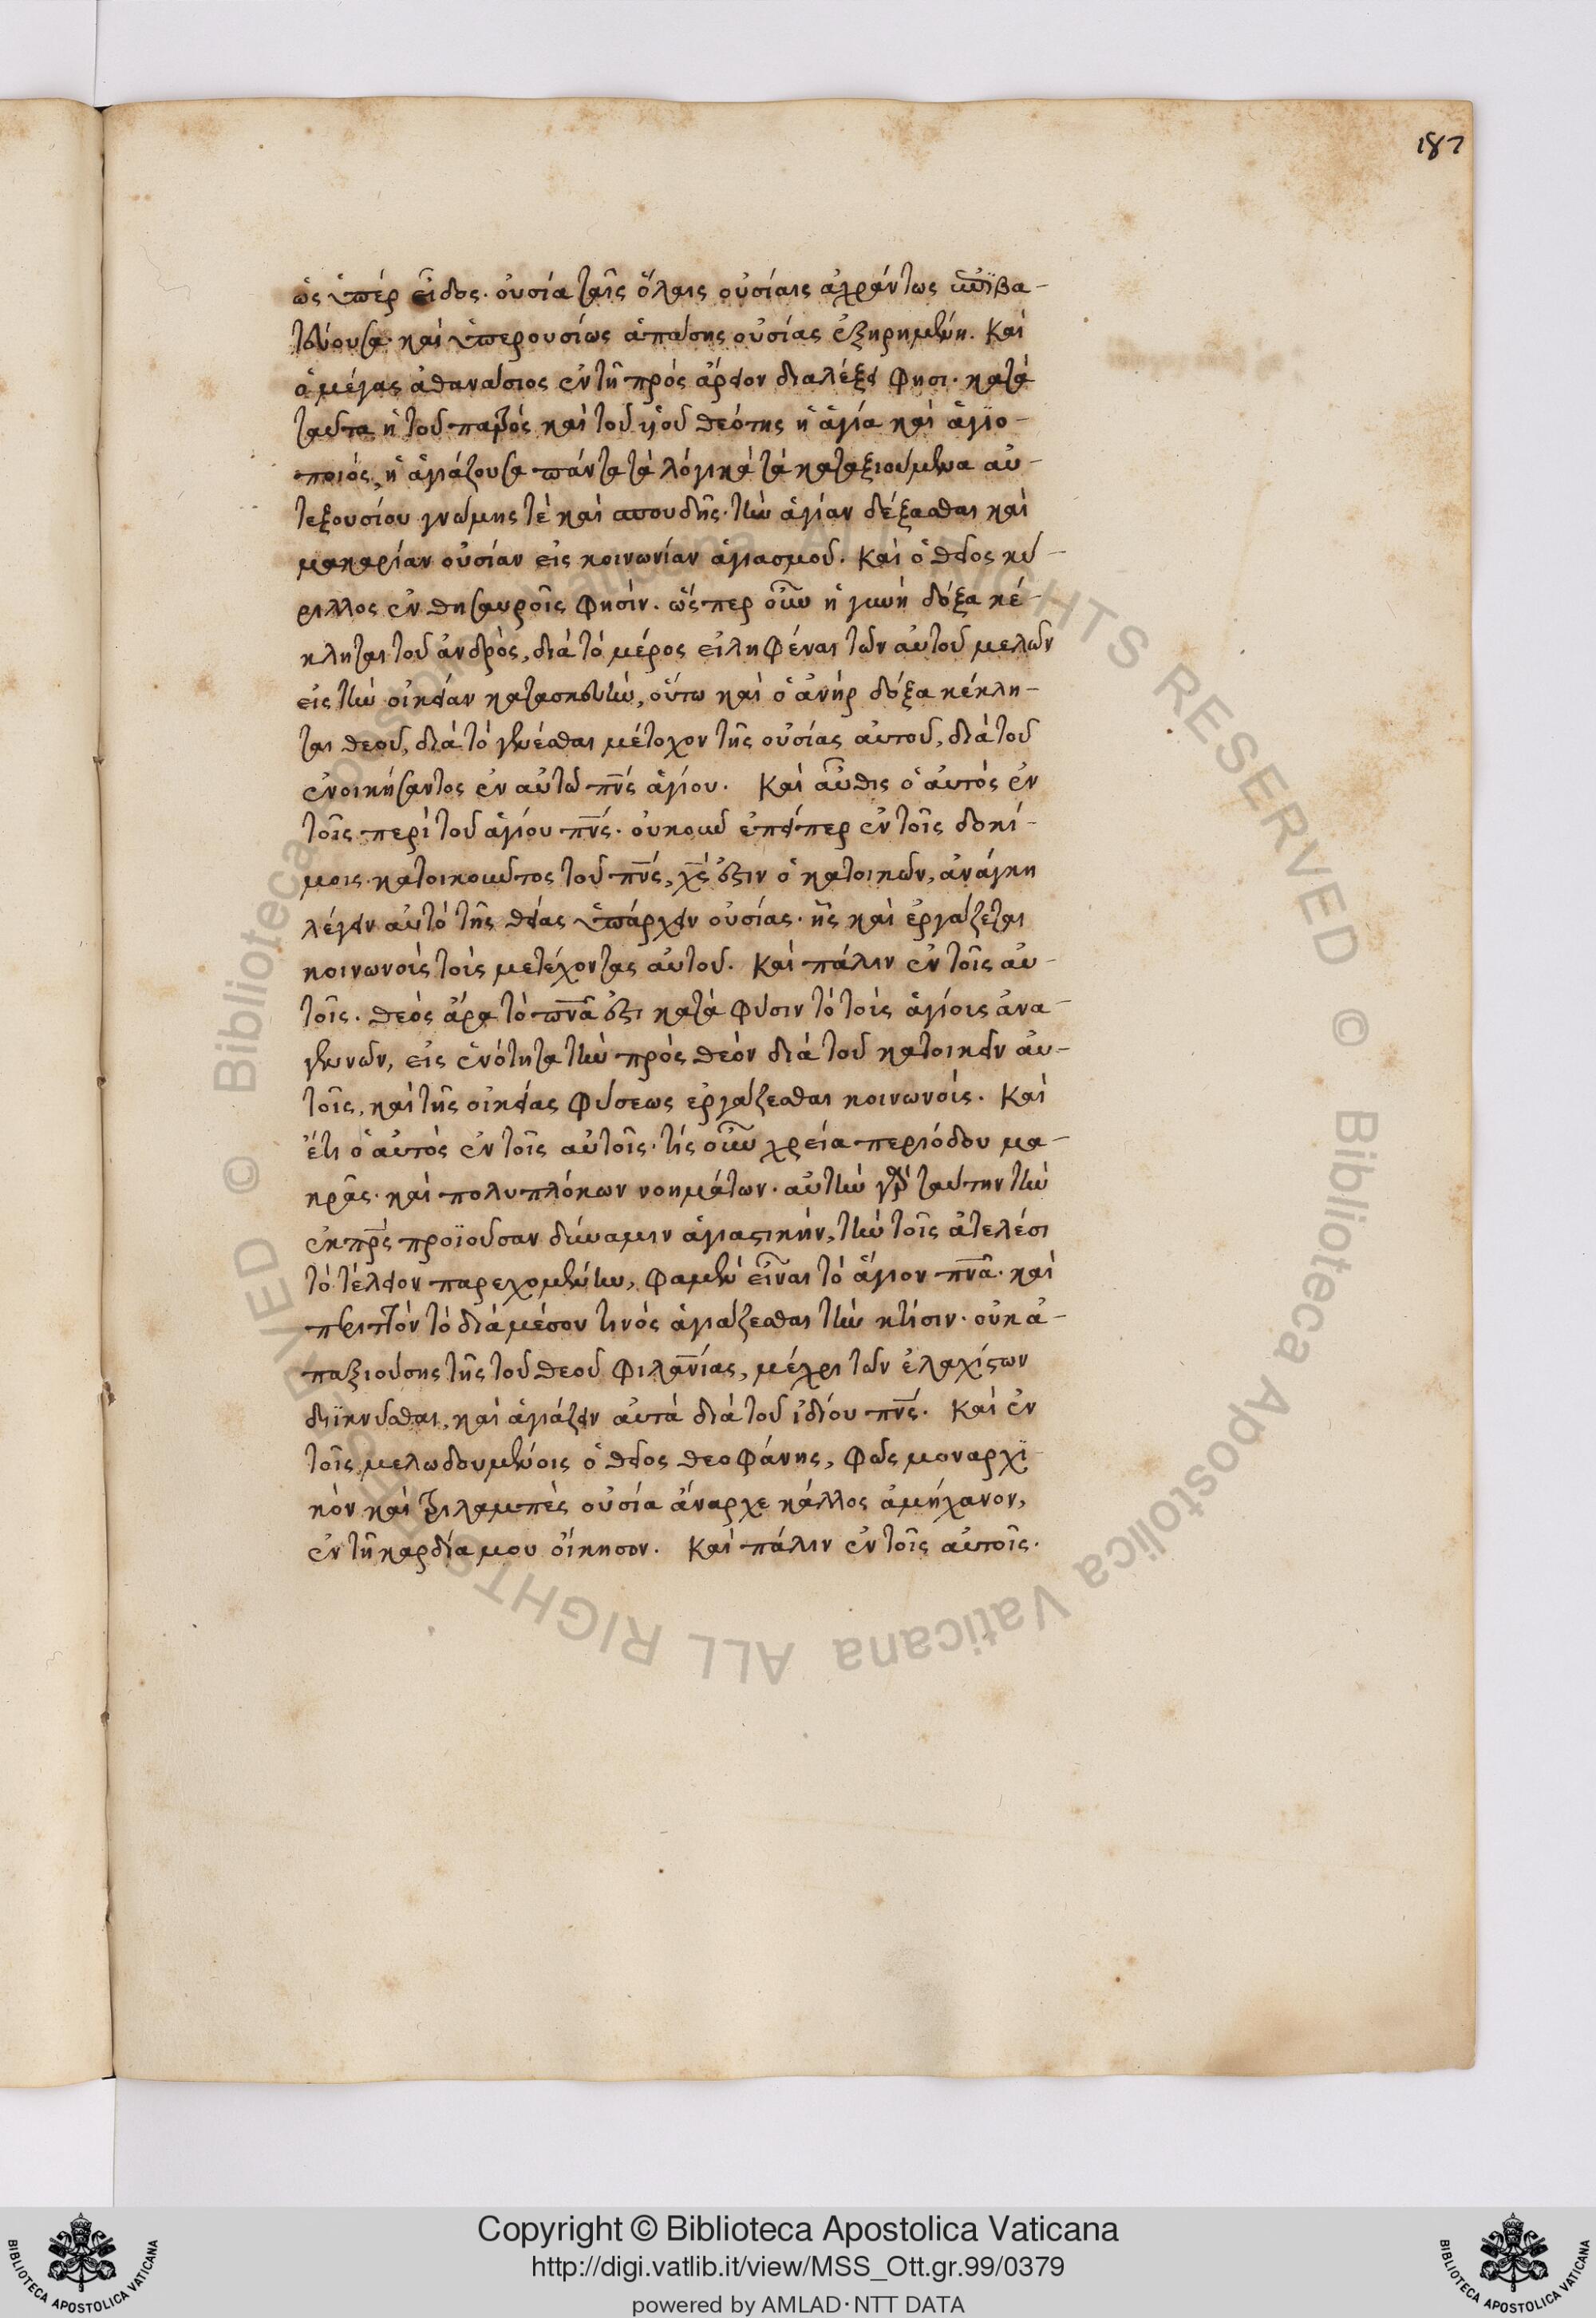 187
ὡς ὑπὲρ εἶδος· οὐσία ταῖς ὅλαις οὐσίαις ἀχράντως ἐπιβα-
τεύουσα· καὶ ὑπερουσίως ἁπάσης οὐσίας ἐξῃρημένη. Καὶ
ὁ μέγας ἀθανάσιος ἐν τῇ πρὸς ἄρειον διαλέξει φησί· κατὰ
ταῦτα ἡ τοῦ πατρὸς καὶ τοῦ υἱοῦ θεότης ἡ ἁγία καὶ ἁγιο-
ποιός, ἡ ἁγιάζουσα πάντα τὰ λόγικὰ τὰ καταξιούμενα αὐ-
τεξουσίου γνώμης τὲ καὶ σπουδῆς· τὴν ἁγίαν δέξασθαι καὶ
μακαρίαν οὐσίαν εἰς κοινωνίαν ἁγιασμοῦ. Καὶ ὁ θεῖος κύ-
ριλλος ἐν θησαυροῖς φησίν· ὥσπερ οὖν ἡ γυνὴ δόξα κέ-
κληται τοῦ ἀνδρὸς, διὰ τὸ μέρος εἰληφέναι τῶν αὐτοῦ μελῶν
εἰς τὴν οἰκείαν κατασκευὴν, οὕτω καὶ ὁ ἀνὴρ δόξα κέκλη-
ται θεοῦ, διὰ τὸ γενέσθαι μέτοχον τῆς οὐσίας αὐτοῦ, διὰ τοῦ
ἐνοικήσαντος ἐν αὐτῷ πνς ἁγίου. Καὶ αὖθις ὁ αὐτὸς ἐν
τοῖς περὶ τοῦ ἁγίου πνς· οὐκοῦν ἐπείπερ ἐν τοῖς δοκί-
μοις κατοικοῦντος τοῦ πνς, χς ἐστιν ὁ κατοικῶν, ἀνάγκη
λέγειν αὐτὸ τῆς θείας ὑπάρχειν οὐσίας· ἧς καὶ ἐργάζεται
κοινωνοὺς τοὺς μετέχοντας αὐτοῦ. Καὶ πάλιν ἐν τοῖς αὐ-
τοῖς· θεὸς ἄρα τὸ πνα ἐστι κατὰ φύσιν τὸ τοὺς ἁγίοις ἀνα-
γεννῶν, εἰς ἑνότητα τὴν πρὸς θεὸν διὰ τοῦ κατοικεῖν αὐ-
τοῖς, καὶ τῆς οἰκείας φύσεως ἐργάζεσθαι κοινωνοὺς. Καὶ
ἔτι ὁ αὐτὸς ἐν τοῖς αὐτοῖς· τίς οὖν χρεία περιόδου μα-
κρᾶς· καὶ πολυπλόκων νοημάτων· αὐτὴν γὰρ ταύτην τὴν
ἐκ πρς προϊοῦσαν δύναμιν ἁγιαστικὴν, τὴν τοῖς ἀτελέσι
τὸ τέλειον παρεχομένην, φαμὲν εἶναι τὸ ἅγιον πνα· καὶ
περιττὸν τὸ διὰ μέσου τινὸς ἁγιάζεσθαι τὴν κτίσιν· οὐκ ἀ-
παξιούσης τῆς τοῦ θεοῦ φιλανίας, μέχρι τῶν ἐλαχίστων
διϊκνῦσθαι, καὶ ἁγιάζειν αὐτὰ διὰ τοῦ ἰδίου πνς. Καὶ ἐν
τοῖς μελωδουμένοις ὁ θεῖος θεοφάνης, φῶς μοναρχι-
κὸν καὶ τριλαμπὲς οὐσία ἄναρχε κάλλος ἀμήχανον,
ἐν τῇ καρδία μου οἴκησον. Καὶ πάλιν ἐν τοῖς αὐτοῖς·
© Biblioteca Apostolica Vaticana ALL RIGHTS RESERVED © Biblioteca Apostolica Vaticana ALL RIGHTS RESERVED
Copyright © Biblioteca Apostolica Vaticana
http://digi.vatlib.it/view/MSS_Ott.gr.99/0379
powered by AMLAD·NTT DATA
BIBLIOTECA APOSTOLICA VATICANA
BIBLIOTECA APOSTOLICA VATICANA